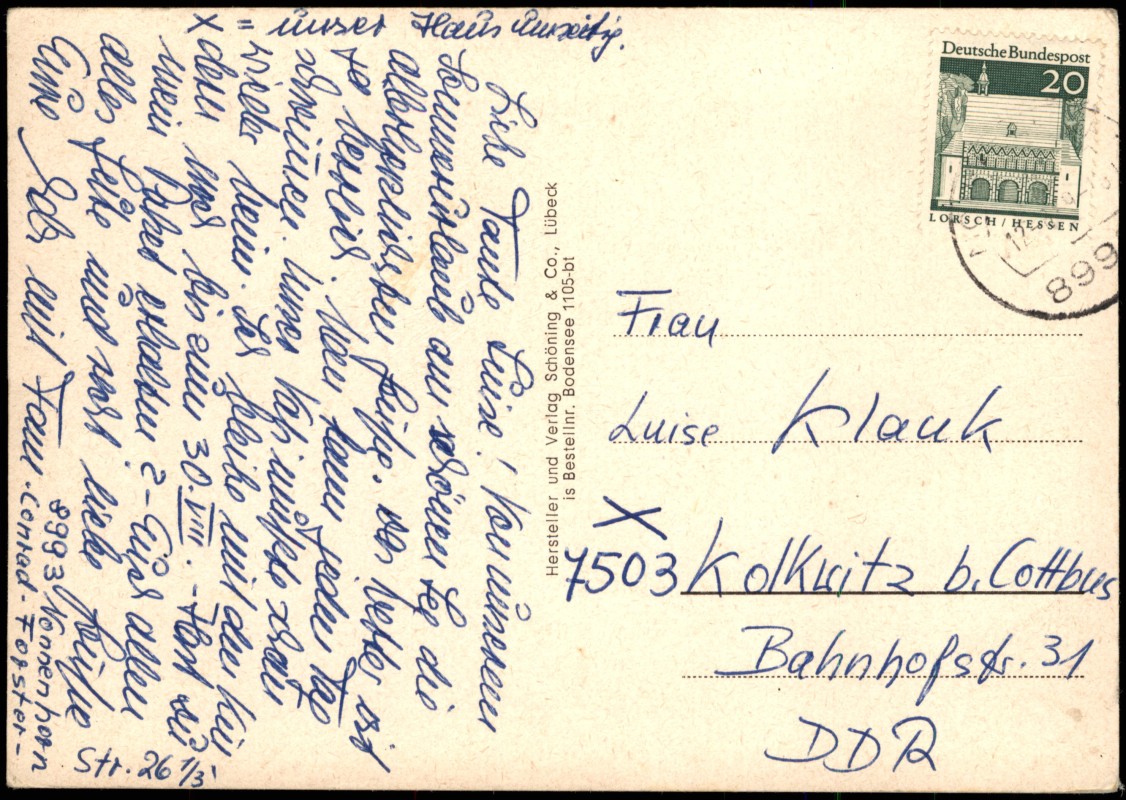 = unser Haus umseitig.
Liebe Tante Luise! Von unserem
Sommerurlaub am schönen See die
allerherzlichsten Grüße. Das Wetter ist
so herrlich. Man kann jeden Tag
schwimmen. Unser
wieder heim. Ich bleibe mit den
X
noch bis zum 30.VIII. -
mein Paket erhalten? - Euch allen
alles Liebe und recht liebe Grüße
Eure mit Fam.
Conrad-Forster-
Str. 26 1/3
8993 Nonnenhorn
Hersteller und Verlag Schöning & Co., Lübeck
is Bestellnr. Bodensee 1105-bt
Deutsche Bundespost
20
LORSCH/HESSEN
899
Frau
Luise Klauk
X
7503 Kolkwitz b. Cottbus
Bahnhofstr. 31
DDR